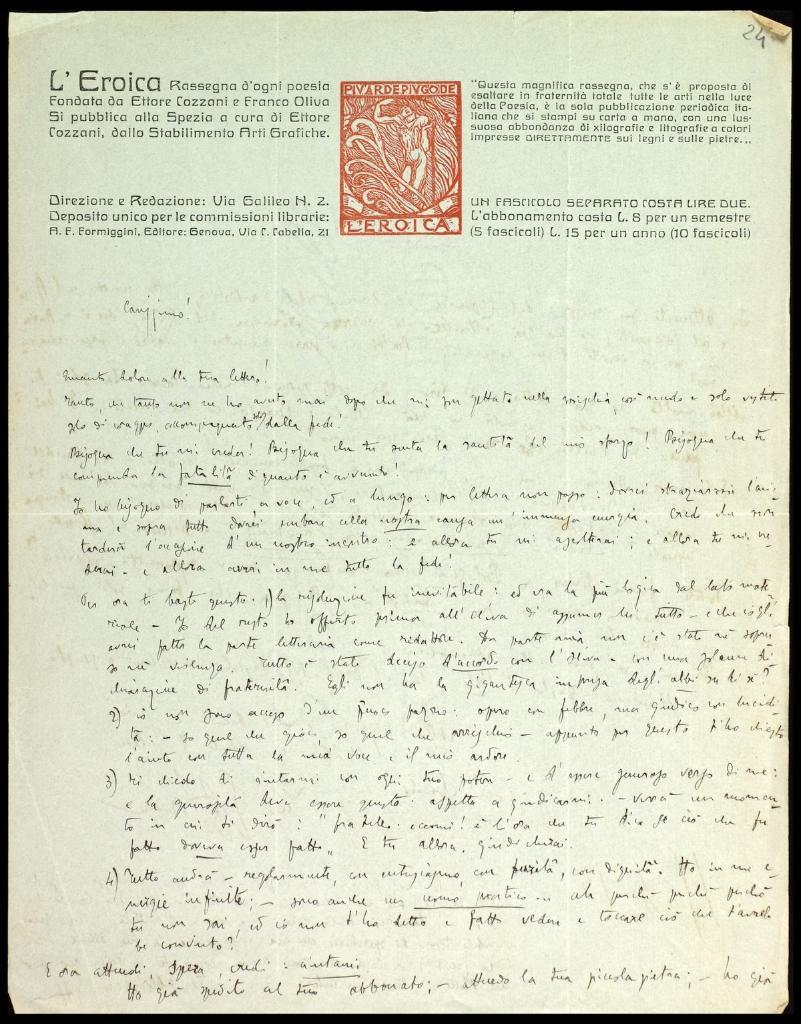 24
L'Eroica Rassegna d'ogni poesia
Fondata da Ettore Cozzani e Franco Oliva
Si pubblica alla Spezia a cura di Ettore
Cozzani, dallo Stabilimento Arti Grafiche.
Direzione e Redazione: Via Galileo N. 2.
Deposito unico per le commissioni librarie:
A. F. Formiggini, Editore: Genova, Via C. Cabella, 21
PIVARDEPIVGODE
L'EROICA
"Questa magnifica rassegna, che s'è proposta di
esaltare in fraternità totale tutte le arti nella luce
della Poesia, è la sola pubblicazione periodica ita-
liana che si stampi su carta a mano, con una lus-
suosa abbondanza di xilografie e litografie a colori
impresse DIRETTAMENTE sui legni e sulle pietre...
UN FASCICOLO SEPARATO COSTA LIRE DUE.
L'abbonamento costa L. 8 per un semestre
(5 fascicoli) L. 15 per un anno (10 fascicoli)
Carissimo!
Quanto dolore alla tua lettera!
Tanto, che tanto non ne ho avuto mai dopo che mi son gettato nella mischia, così nudo e solo, vestito
solo di coraggio, accompagnato solo dalla fede!
Bisogna che tu mi creda! Bisogna che tu senta la santità del mio sforzo! Bisogna che tu
comprenda la fatalità di quanto è avvenuto!
Io ho bisogno di parlarti, a voce, ed a lungo: per lettera non posso: dovrei straziarmi l'ani-
ma e sopra tutto dovrei rubare alla nostra causa un'immensa energia. Credo che non
tarderà l'occasione d'un nostro incontro: e allora tu mi ascolterai; e allora tu mi
- e allora avrai in me tutta la fede!
Per ora ti basti questo. 1) la risoluzione fu inevitabile: ed era la più logica dal lato mate-
riale - Io del resto ho offerto prima all'Oliva di assumer lui tutto - e che io gli
avrei fatto la parte letteraria come redattore. Da parte mia non c'è stata nè sopru-
so nè violenza. Tutto è stato deciso d'accordo con l'Oliva - con una solenne di-
chiarazione di fraternità. Egli non ha la gigantesca impresa degli albi su di sè?
2) io non sono acceso d'un fuoco pazzo: opero con febbre, ma giudico con lucidi-
tà: - so quel che gioco, so quel che arrischio - appunto per questo t'ho chiesto
l'aiuto con tutta la mia voce e il mio ardore.
3) Ti chiedo di aiutarmi con ogni tuo potere - e d'essere generoso verso di me:
e la generosità deve essere questa: aspetta a giudicarmi. - Verrà un momen-
to in cui ti dirò: "fratello, eccomi! è l'ora che tu dica se ciò che fu
fatto doveva esser fatto". E tu allora, giudicherai.
4) Tutto andrà - regolarmente, con entusiasmo, con purità, con dignità. Ho in me e-
nergie infinite; - sono anche un uomo pratico... ah perchè perchè perchè
tu non sai, ed io non t'ho detto e fatto vedere e toccare ciò che t'avreb-
be convinto?
E ora attendi, spera, credi: aiutami
Ho già spedito al tuo abbonato; - attendo la tua piccola pietra; - ho già